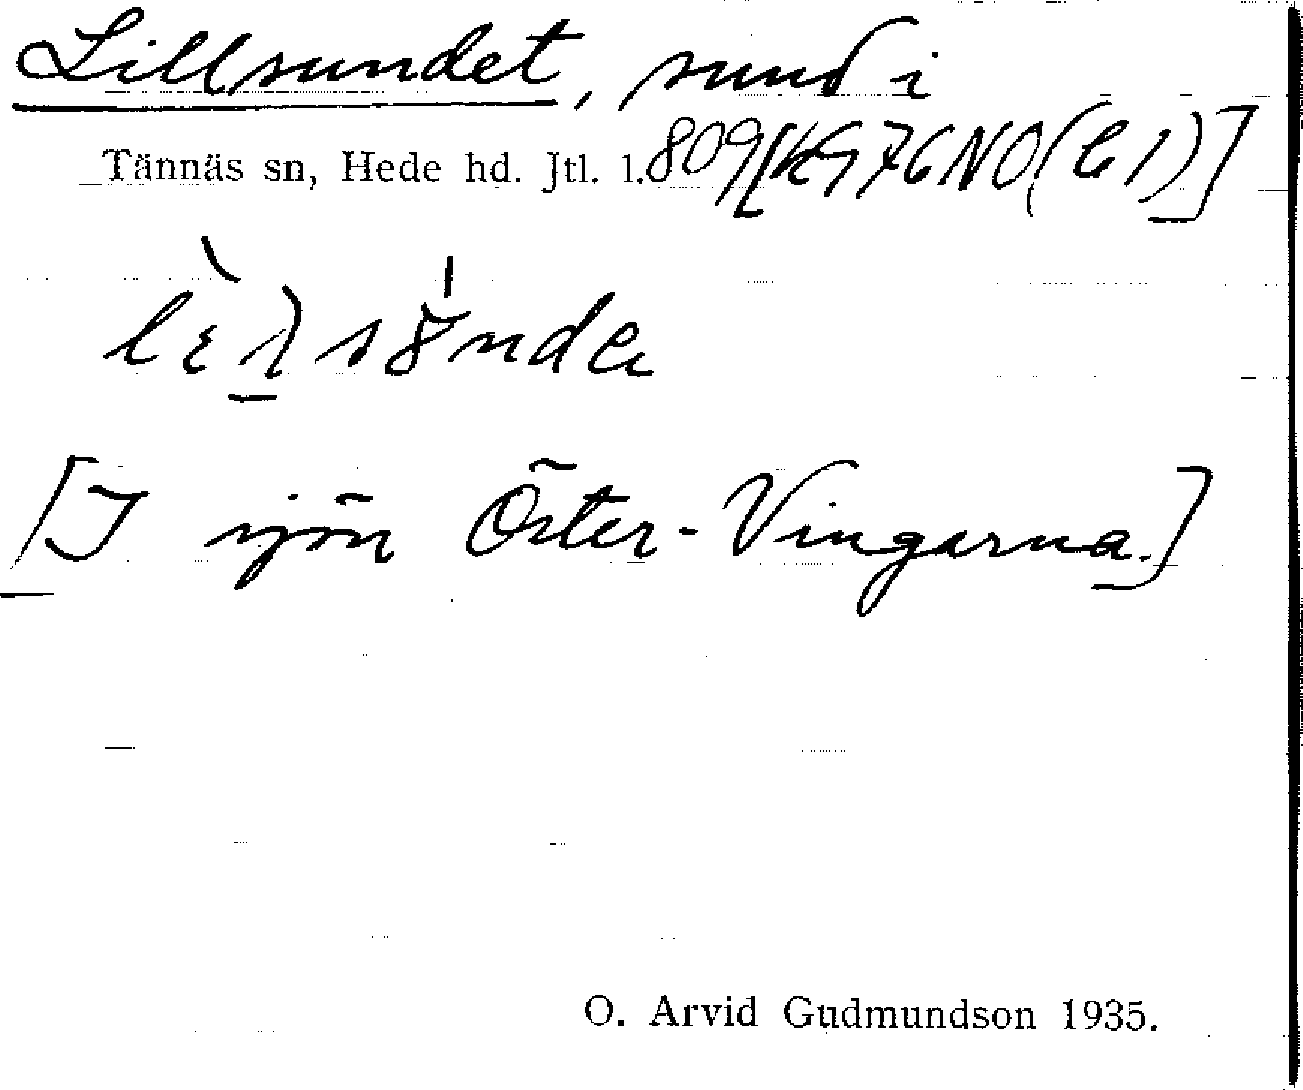 Lillsundet, sund i
Tännäs sn, Hede hd. Jtl. l. 809 [KG 76 NO (C 1)]
[I sjön Öster-Vingarna.]
O. Arvid Gudmundson 1935.